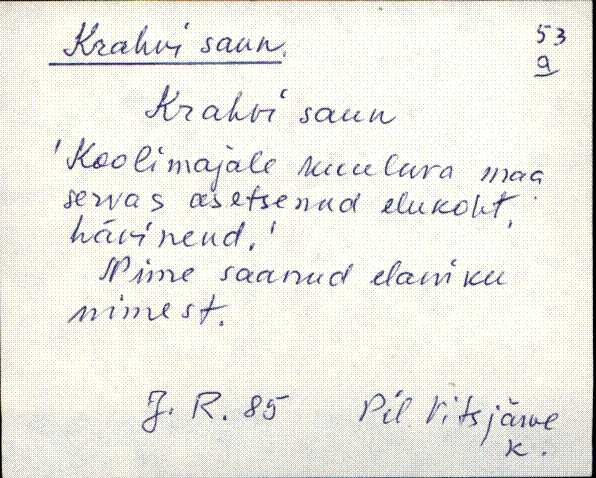 Krahvi saun.
53
a
Krahvi saun
'Koolimajale kuuluva maa
servas asetsenud elukoht,
hävinend.'
Nime saanud elaniku
nimest.
J. R. 85
Pil. Vitsjärve
k.